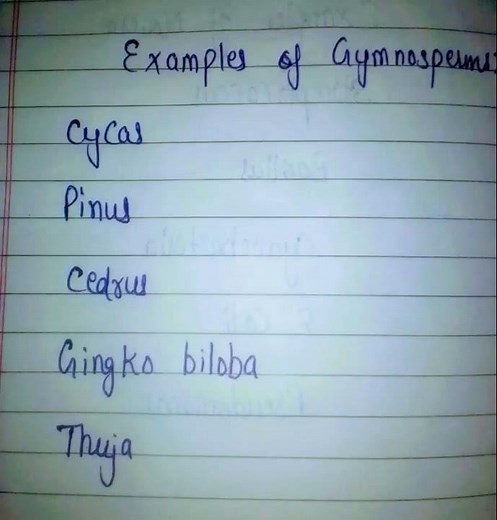 Examples of Gymnosperms
Cycas
Pinus
Cedrus
Gingko biloba
Thuja